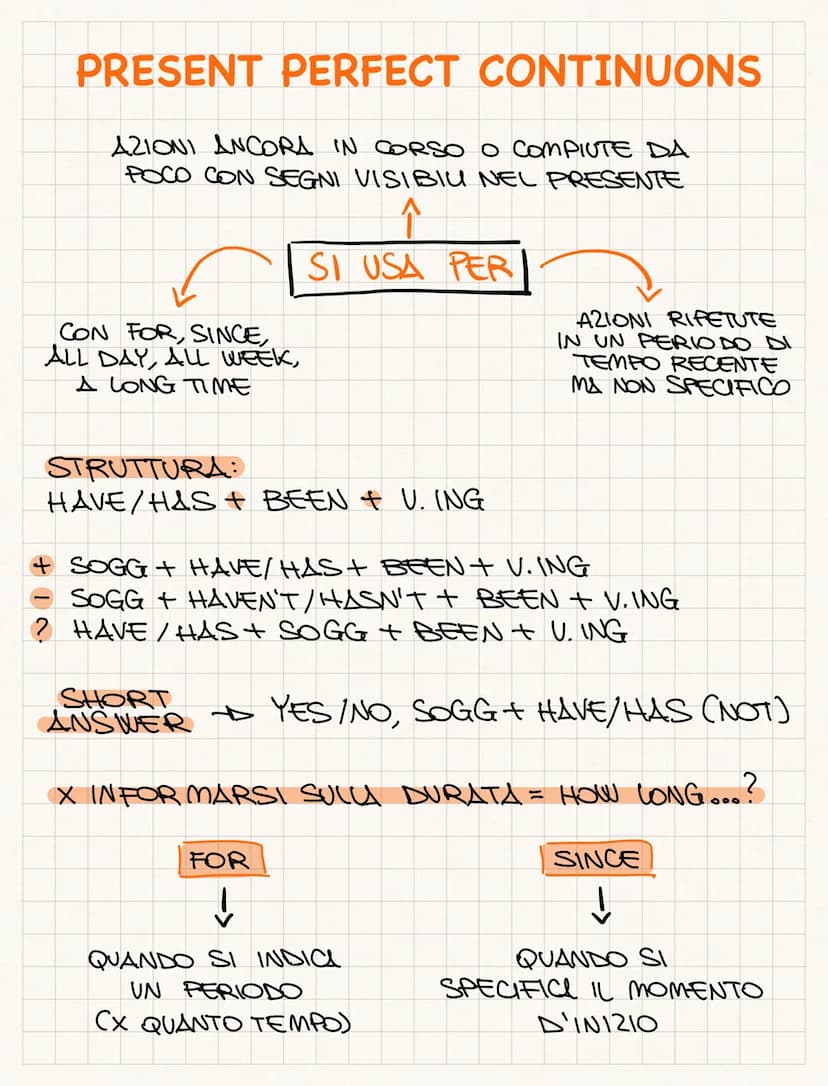 PRESENT PERFECT CONTINUONS
AZIONI ANCORA IN CORSO O COMPIUTE DA
POCO CON SEGNI VISIBILI NEL PRESENTE
SI USA PER
CON FOR, SINCE,
ALL DAY, ALL WEEK,
A LONG TIME
AZIONI RIPETUTE
IN UN PERIODO DI
TEMPO RECENTE
MA NON SPECIFICO
STRUTTURA:
HAVE/HAS + BEEN + V. ING
+ SOGG + HAVE/HAS + BEEN + V. ING
- SOGG + HAVEN'T/HASN'T + BEEN + V.ING
? HAVE/HAS + SOGG + BEEN + V. ING
SHORT
ANSWER → YES/NO, SOGG + HAVE/HAS (NOT)
X INFORMARSI SULLA DURATA = HOW LONG...?
FOR
QUANDO SI INDICA
UN PERIODO
(X QUANTO TEMPO)
SINCE
QUANDO SI
SPECIFICA IL MOMENTO
D'INIZIO